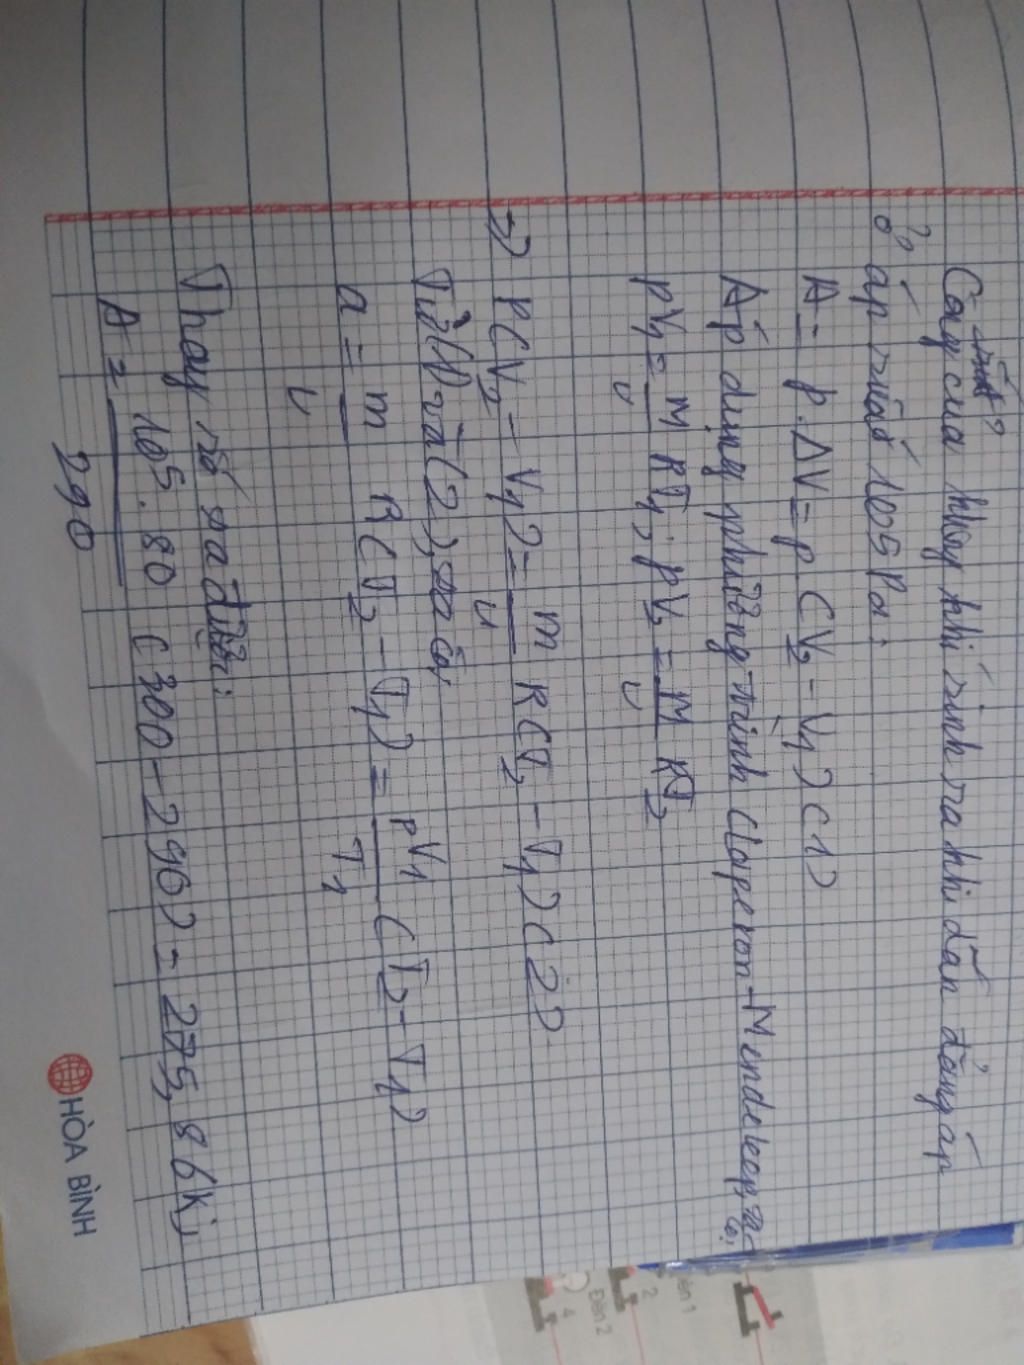 Công của khối khí sinh ra khi dãn đẳng áp
ở áp suất 105 Pa:
A = p.ΔV = p(V2 - V1) (1)
Áp dụng phương trình Claperon-Mendeleep, ta có:
pV1 = M/μ RT1; pV2 = M/μ RT2
→ p(V2 - V1) = m/μ R(T2 - T1) (2)
Từ (1) và (2),
a = m/μ R(T2 - T1) = pV1/T1 (T2 - T1)
Thay số ta được:
A = 10⁵.80/290 (300 - 296) = 275,86Kj
HÒA BÌNH
Đèn 1
2
Đèn 2
4